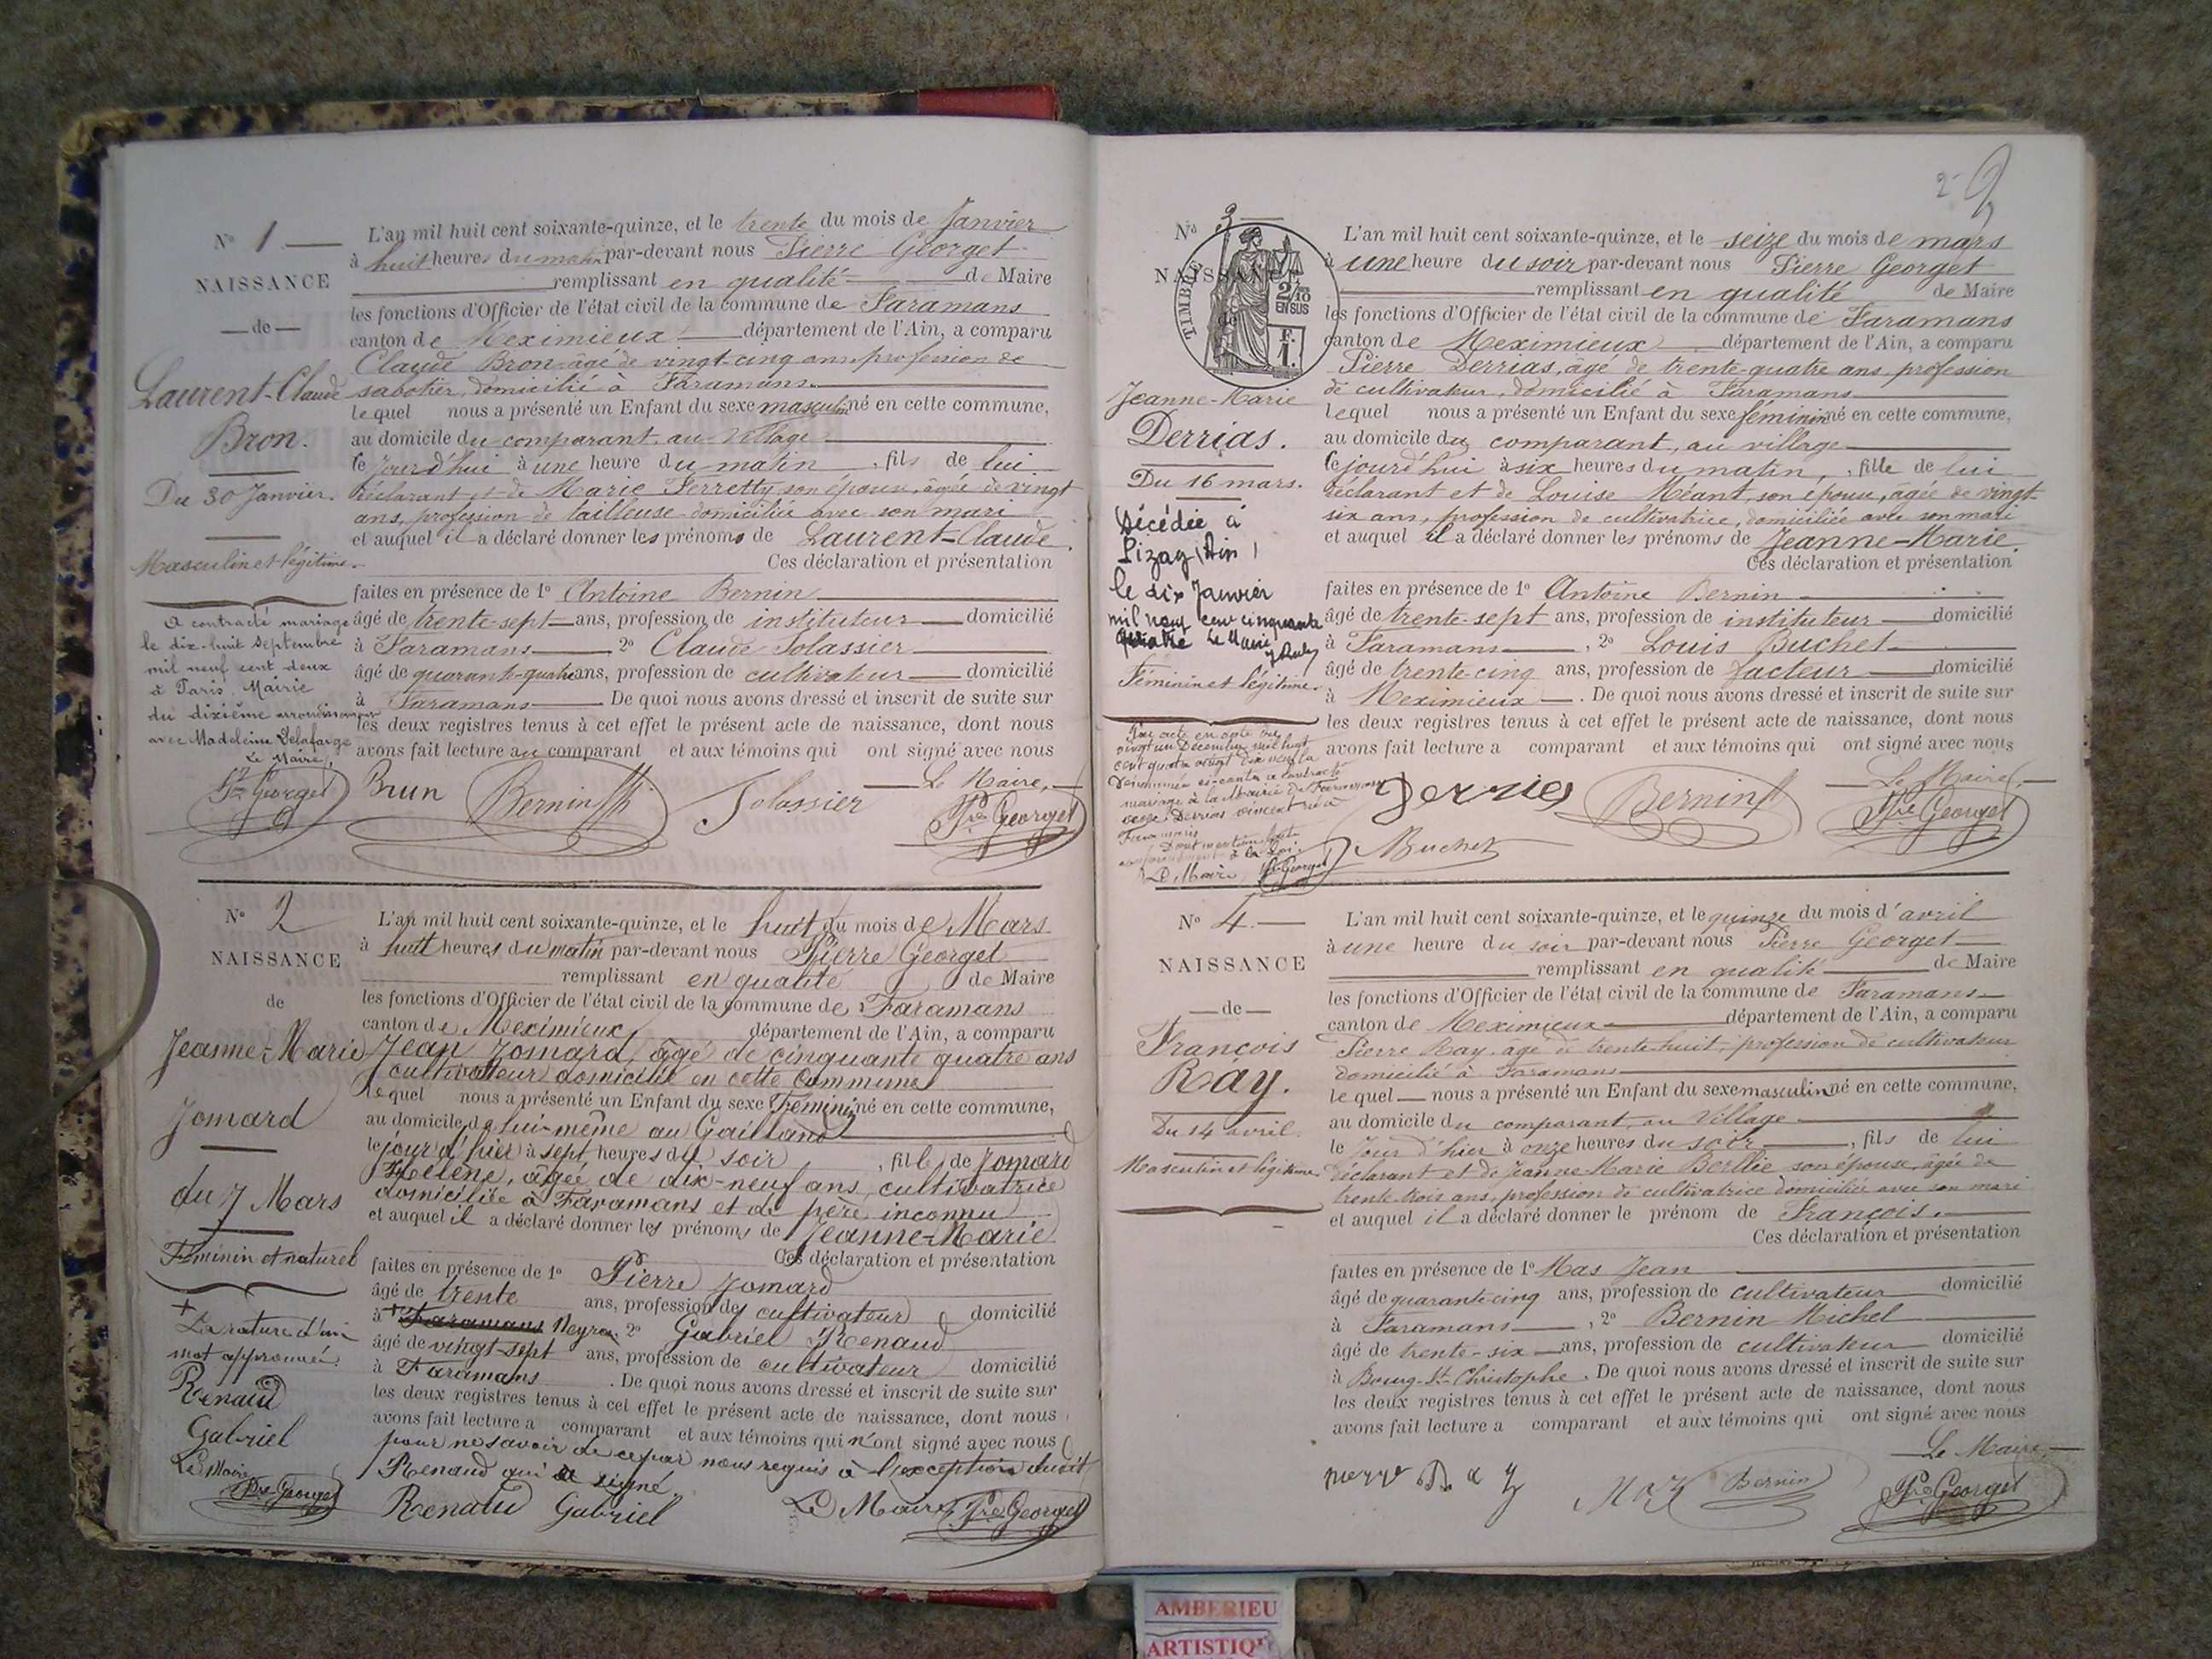 N° 1
NAISSANCE
de
Laurent-Claude
Bron.
Du 30 Janvier.
Masculin et légitime.
A contracté mariage
le dix-huit septembre
mil neuf cent deux
à Paris, Mairie
du dixième arrondissement
avec Madeleine Delafarge
Le Maire,
Pre Georget
L'an mil huit cent soixante-quinze, et le trente du mois de Janvier
à huit heures du matin par-devant nous Pierre Georget
remplissant en qualité de Maire
les fonctions d'Officier de l'état civil de la commune de Faramans
canton de Meximieux département de l'Ain, a comparu
Claude Bron, âgé de vingt-cinq ans, profession de
sabotier, domicilié à Faramans
lequel nous a présenté un Enfant du sexe masculin né en cette commune,
au domicile du comparant, au Village
le jourd'hui à une heure du matin, fils de lui
déclarant et de Marie Ferretty son épouse, âgée de vingt
ans, profession de tailleuse domiciliée avec son mari
et auquel il a déclaré donner les prénoms de Laurent-Claude.
Ces déclaration et présentation
faites en présence de 1° Antoine Bernin
âgé de trente-sept ans, profession de instituteur domicilié
à Faramans 2° Claude Jolassier
âgé de quarante-quatre ans, profession de cultivateur domicilié
à Faramans De quoi nous avons dressé et inscrit de suite sur
les deux registres tenus à cet effet le présent acte de naissance, dont nous
avons fait lecture au comparant et aux témoins qui ont signé avec nous
Le Maire,
Brun Bernin Jolassier Pre Georget
N° 2
NAISSANCE
de
Jeanne-Marie
Jomard
du 7 Mars
Féminin et naturel
+
La rature d'un
mot approuvée.
Renaud
Gabriel
Le Maire
Pre Georget
L'an mil huit cent soixante-quinze, et le huit du mois de Mars
à huit heures du matin par-devant nous Pierre Georget
remplissant en qualité de Maire
les fonctions d'Officier de l'état civil de la commune de Faramans
canton de Meximieux département de l'Ain, a comparu
Jean Jomard, âgé de cinquante quatre ans
cultivateur domicilié en cette commune
lequel nous a présenté un Enfant du sexe Féminin né en cette commune,
au domicile de lui-même au Gailland
le jour d'hier à sept heures du soir, fille de Jomard
Hélène, âgée de dix-neuf ans, cultivatrice
domiciliée à Faramans et de père inconnu
et auquel il a déclaré donner les prénoms de Jeanne-Marie
Ces déclaration et présentation
faites en présence de 1° Pierre Jomard
âgé de trente ans, profession de cultivateur domicilié
à + Faramans Neyron 2° Gabriel Renaud
âgé de vingt-sept ans, profession de cultivateur domicilié
à Faramans. De quoi nous avons dressé et inscrit de suite sur
les deux registres tenus à cet effet le présent acte de naissance, dont nous
avons fait lecture a comparant et aux témoins qui n'ont signé avec nous
pour ne savoir de ce par nous requis à l'exception dudit
Renaud qui a signé.
Renaud Gabriel Le Maire, Pre Georget
2
N° 3
NAISSANCE
de
TIMBRE
2/10
EN SUS
F.
1.
Jeanne-Marie
Derrias.
Du 16 mars.
Décédée à
Pizay (Ain)
le dix Janvier
mil neuf cent cinquante
quatre Le Maire
Féminin et légitime.
Par acte en date du
vingt un Décembre mil huit
cent quatre vingt dix
mariage à la Mairie de Faramans
avec Derrias Vincent
Faramans
Dont mention faite
conformément à la loi.
Le Maire, Pre Georget
L'an mil huit cent soixante-quinze, et le seize du mois de mars
à une heure du soir par-devant nous Pierre Georget
remplissant en qualité de Maire
les fonctions d'Officier de l'état civil de la commune de Faramans
canton de Meximieux département de l'Ain, a comparu
Pierre Derrias, âgé de trente-quatre ans, profession
de cultivateur, domicilié à Faramans
lequel nous a présenté un Enfant du sexe féminin né en cette commune,
au domicile du comparant, au village
le jourd'hui à six heures du matin, fille de lui
déclarant et de Louise Méant, son épouse, âgée de vingt-
six ans, profession de cultivatrice, domiciliée avec son mari
et auquel il a déclaré donner les prénoms de Jeanne-Marie.
Ces déclaration et présentation
faites en présence de 1° Antoine Bernin
âgé de trente-sept ans, profession de instituteur domicilié
à Faramans, 2° Louis Buchet
âgé de trente-cinq ans, profession de facteur domicilié
à Meximieux. De quoi nous avons dressé et inscrit de suite sur
les deux registres tenus à cet effet le présent acte de naissance, dont nous
avons fait lecture a comparant et aux témoins qui ont signé avec nous
Le Maire,
Derries Bernin Pre Georget
Buchet
N° 4.
NAISSANCE
de
François
Ray.
Du 14 avril.
Masculin et légitime.
L'an mil huit cent soixante-quinze, et le quinze du mois d'avril
à une heure du soir par-devant nous Pierre Georget
remplissant en qualité de Maire
les fonctions d'Officier de l'état civil de la commune de Faramans
canton de Meximieux département de l'Ain, a comparu
Pierre Ray, âgé de trente-huit, profession de cultivateur
domicilié à Faramans
lequel nous a présenté un Enfant du sexe masculin né en cette commune,
au domicile du comparant, au Village
le Jour d'hier à onze heures du soir, fils de lui
déclarant et de Jeanne-Marie Berllie son épouse, âgée de
trente-trois ans, profession de cultivatrice domiciliée avec son mari
et auquel il a déclaré donner le prénom de François.
Ces déclaration et présentation
faites en présence de 1° Mas Jean
âgé de quarante-cinq ans, profession de cultivateur domicilié
à Faramans, 2° Bernin Michel
âgé de trente-six ans, profession de cultivateur domicilié
à Bourg-St-Christophe. De quoi nous avons dressé et inscrit de suite sur
les deux registres tenus à cet effet le présent acte de naissance, dont nous
avons fait lecture a comparant et aux témoins qui ont signé avec nous
Le Maire,
pierre Ray Mas Bernin Pre Georget
AMBERIEU
ARTISTIQU